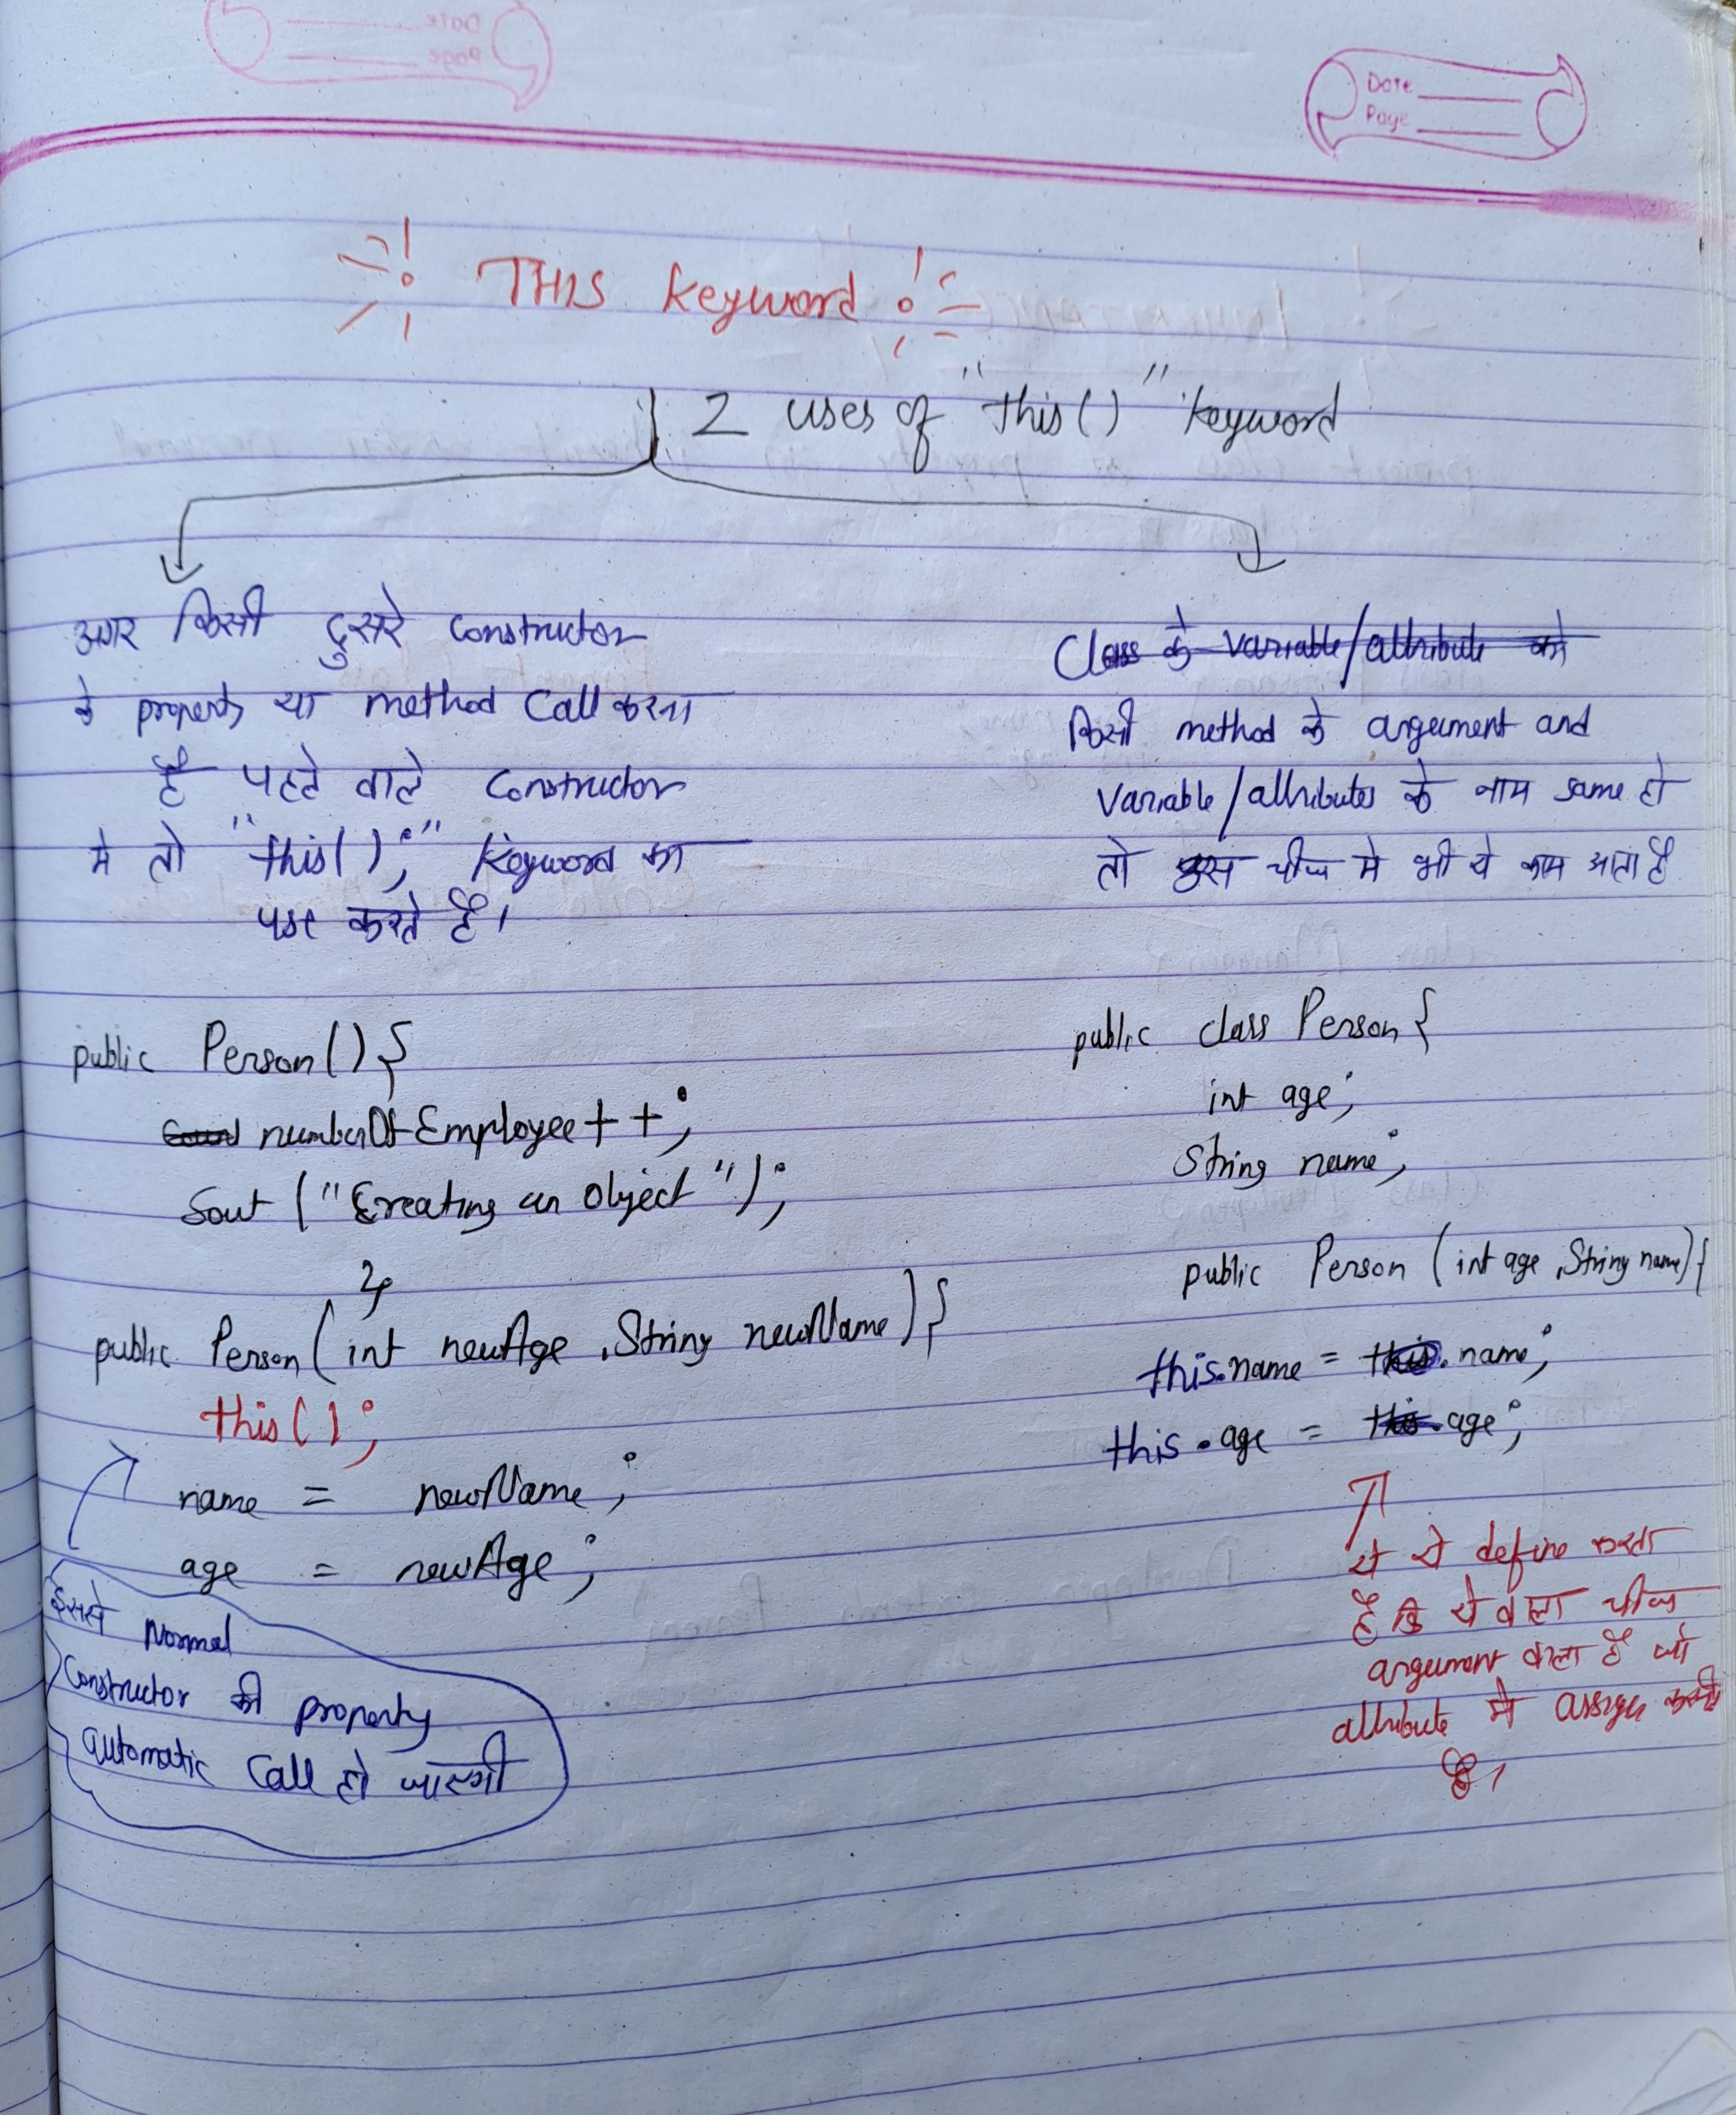 Date
Page
THIS Keyword
2 uses of "this()" keyword
अगर किसी दुसरे constructor
के property या method Call करना
है पहले वाले constructor
मे तो "this();" Keyword का
use करते है।
public Person(){
numberOfEmployee++;
Sout ("Creating an Object");
}
public Person(int newAge, String newName){
this();
name = newName;
age = newAge;
इससे Normal
Constructor की property
automatic Call हो जाएगी
Class के variable/attribute को
किसी method के argument and
variable/attributes के नाम same हो
तो उस चीज मे भी ये काम आता है
public class Person{
int age;
String name;
public Person (int age, String name){
this.name = this.name;
this.age = this.age;
ये ये define करता
है कि ये वाला चीज
argument वाला है जो
attribute मे assign
है।